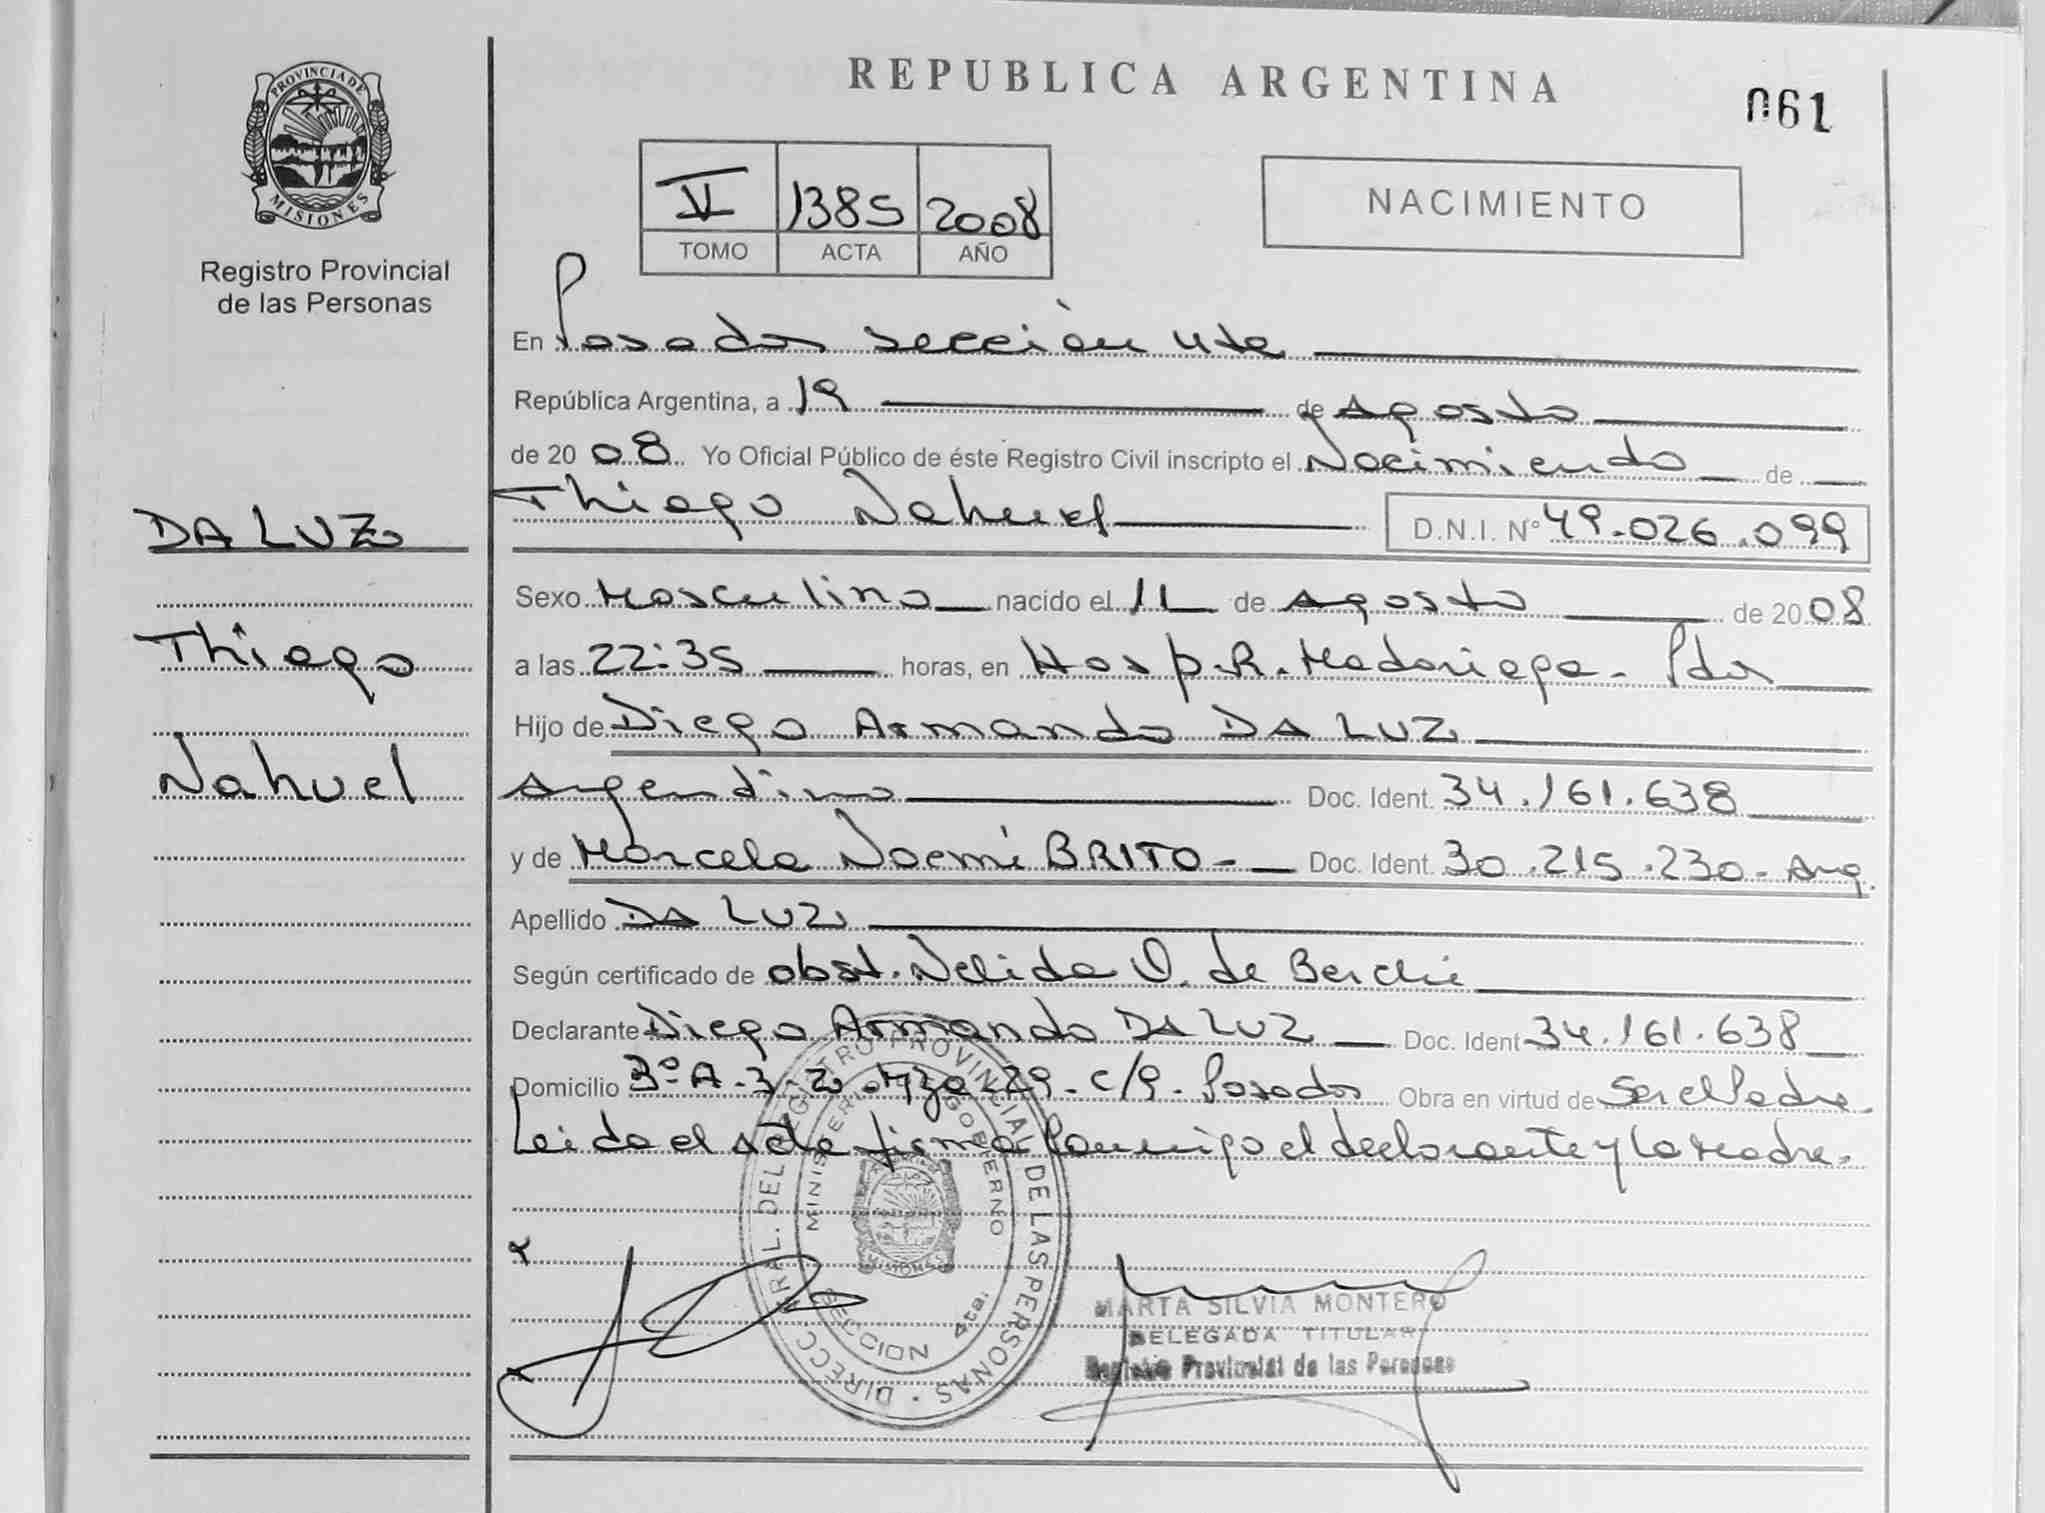 PROVINCIA DE
MISIONES
Registro Provincial
de las Personas
REPUBLICA ARGENTINA
061
V 1385 2008
TOMO ACTA AÑO
NACIMIENTO
En Posadas sección 4ta
República Argentina, a 19 de Agosto
de 2008 Yo Oficial Público de éste Registro Civil inscripto el Nacimiento de
Thiago Nahuel D.N.I. Nº 49.026.099
DA LUZ
Thiago
Nahuel
Sexo Masculino nacido el 11 de Agosto de 2008
a las 22:35 horas, en Hosp. R. Madariaga - Pdas
Hijo de Diego Armando DA LUZ
Argentino Doc. Ident. 34.161.638
y de Marcela Noemí BRITO - Doc. Ident. 30.215.230 - Arg.
Apellido DA LUZ
Según certificado de obst. Nelida O. de
Declarante Diego Armando DA LUZ Doc. Ident 34.161.638
Domicilio 3º A-3-2-Mza 29-c/9-Posadas Obra en virtud de Ser el Padre
Leida el acta firma conmigo el declarante y la Madre.
DIRECC. GRAL. DEL REGISTRO PROVINCIAL DE LAS PERSONAS
MINISTERIO DE GOBIERNO
MISIONES
SECCION 4ta.
MARTA SILVIA MONTERO
DELEGADA TITULAR
Registro Provincial de las Personas